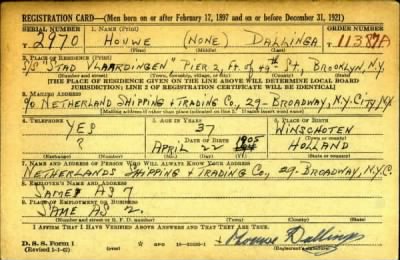 REGISTRATION CARD—(Men born on or after February 17, 1897 and on or before December 31, 1921)
SERIAL NUMBER 1. NAME (Print) ORDER NUMBER
T 2970 HOUWE (NONE) DALLINGA 11387A
(First) (Middle) (Last)
2. PLACE OF RESIDENCE (Print)
S/S "STAD VLAARDINGEN" PIER 2, FT. of 45th ST, BROOKLYN, N.Y.
(Number and street) (Town, township, village, or city) (County) (State)
[THE PLACE OF RESIDENCE GIVEN ON THE LINE ABOVE WILL DETERMINE LOCAL BOARD
JURISDICTION; LINE 2 OF REGISTRATION CERTIFICATE WILL BE IDENTICAL]
3. MAILING ADDRESS
% NETHERLAND SHIPPING & TRADING CO., 29-BROADWAY, N.Y. CITY, NY
[Mailing address if other than place indicated on line 2. If same insert word same]
4. TELEPHONE 5. AGE IN YEARS 6. PLACE OF BIRTH
YES 37 WINSCHOTEN
DATE OF BIRTH (Town or county)
? APRIL 22 1905 HOLLAND
(Mo.) (Day) (Yr.) (State or country)
7. NAME AND ADDRESS OF PERSON WHO WILL ALWAYS KNOW YOUR ADDRESS
NETHERLANDS SHIPPING & TRADING CO., 29-BROADWAY, N.Y.C.
8. EMPLOYER'S NAME AND ADDRESS
SAME AS 7
9. PLACE OF EMPLOYMENT OR BUSINESS
SAME AS 2.
(Number and street or R. F. D. number) (Town) (County) (State)
I AFFIRM THAT I HAVE VERIFIED ABOVE ANSWERS AND THAT THEY ARE TRUE.
D. S. S. Form 1
(Revised 1-1-42) (over) Houwe Dallinga
(Registrant's signature)